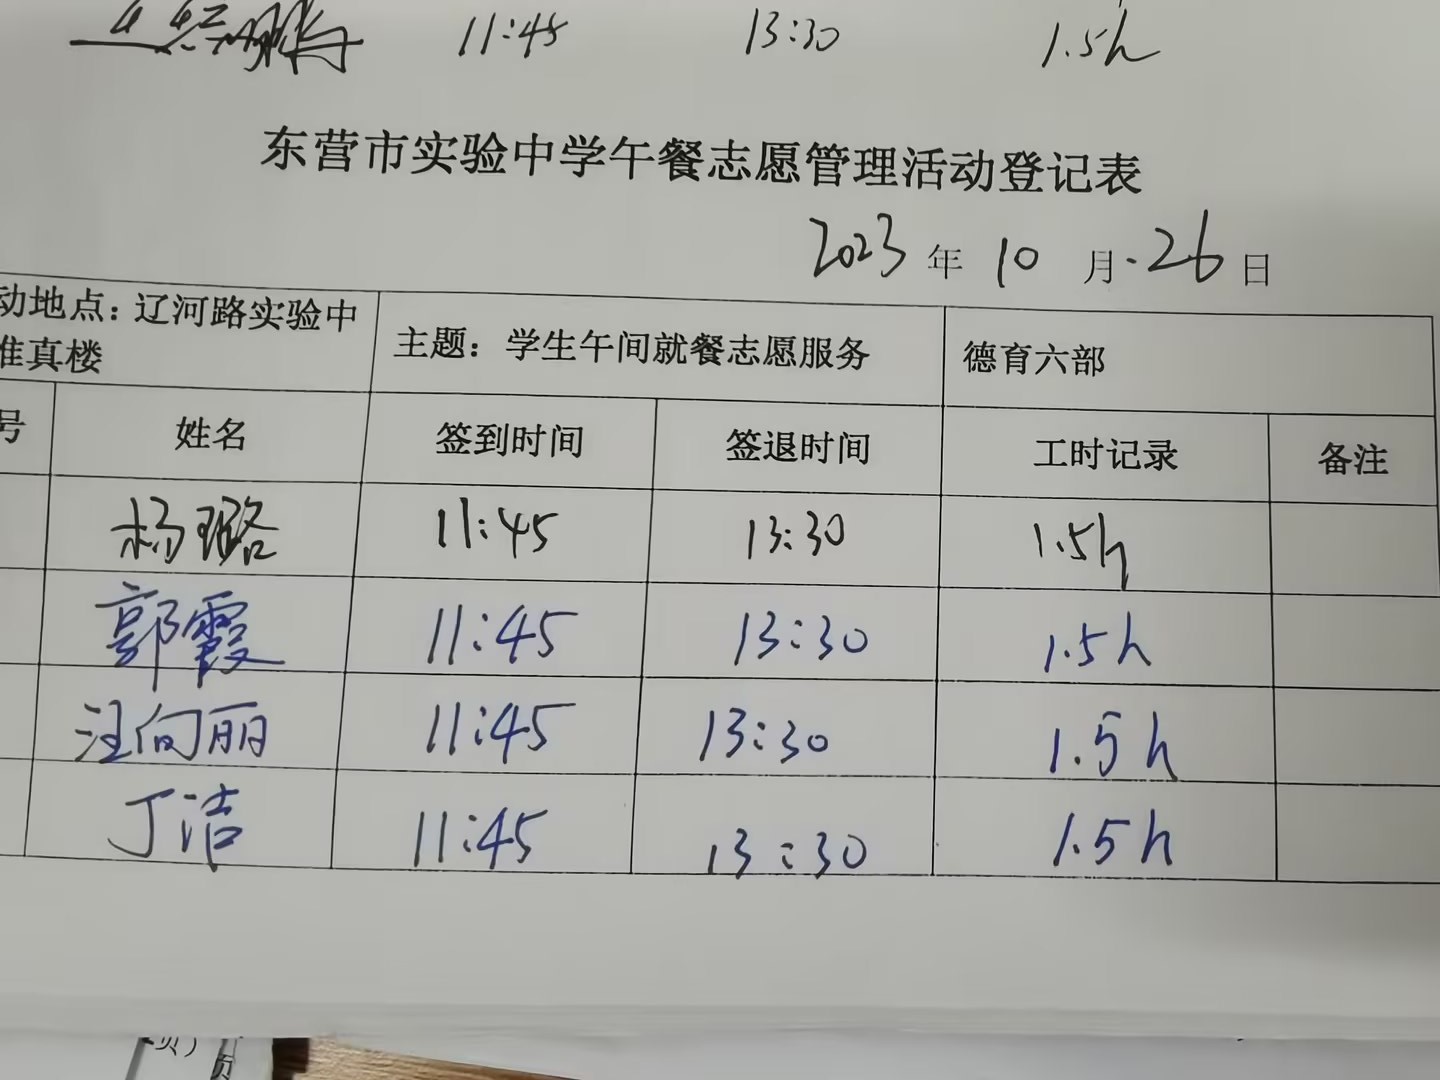 11:45 13:30 1.5h
东营市实验中学午餐志愿管理活动登记表
2023 年 10 月 26 日
动地点：辽河路实验中 主题：学生午间就餐志愿服务 德育六部
准真楼
号 姓名 签到时间 签退时间 工时记录 备注
杨璐 11:45 13:30 1.5h
郭霞 11:45 13:30 1.5h
汪向丽 11:45 13:30 1.5h
丁洁 11:45 13:30 1.5h
页）
页